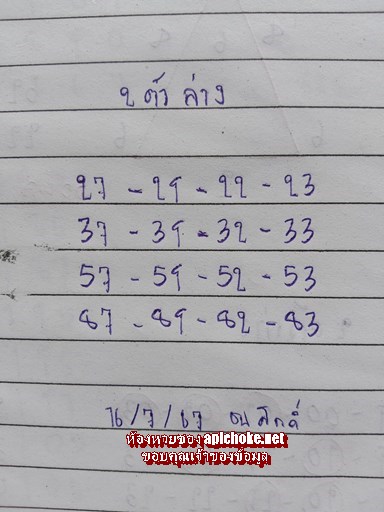 2 ตัว ล่าง
27 - 29 - 22 - 23
37 - 39 - 32 - 33
57 - 59 - 52 - 53
87 - 89 - 82 - 83
16/7/67
ห้องหวยซอง apichoke.net
ขอบคุณเจ้าของข้อมูล